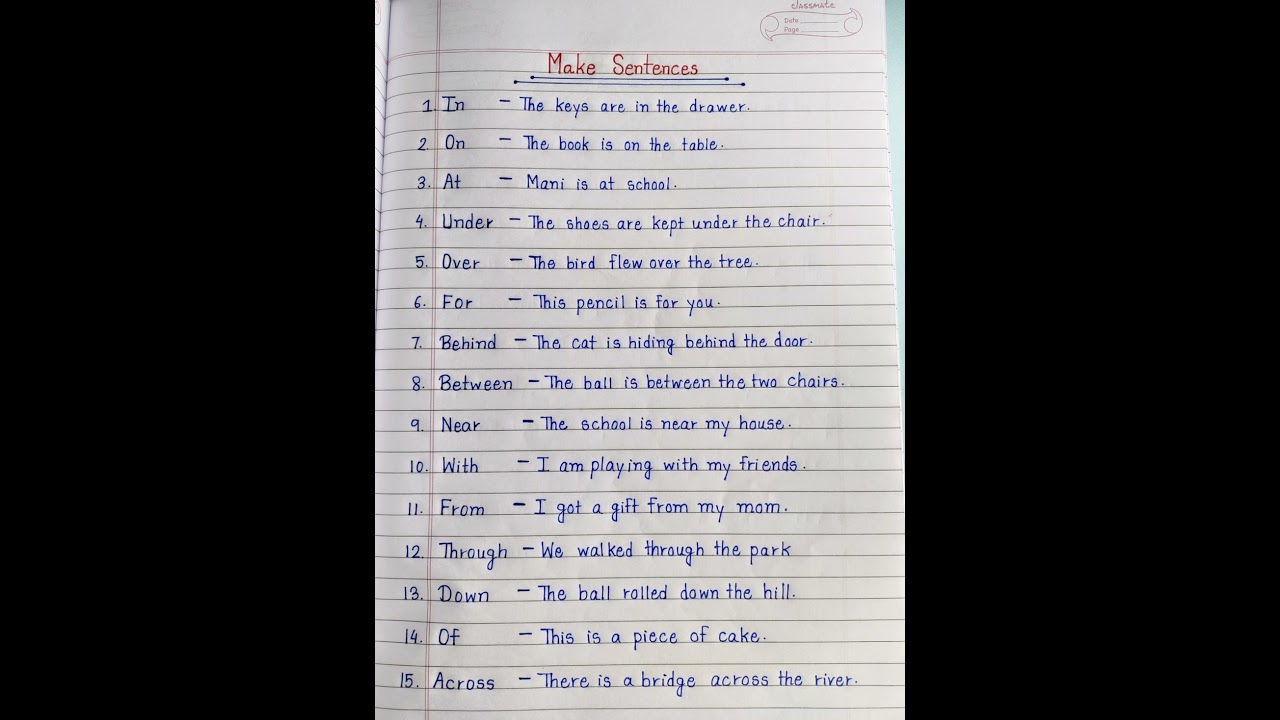 classmate
Date
Page
Make Sentences
1. In - The keys are in the drawer.
2. On - The book is on the table.
3. At - Mani is at school.
4. Under - The shoes are kept under the chair.
5. Over - The bird flew over the tree.
6. For - This pencil is for you.
7. Behind - The cat is hiding behind the door.
8. Between - The ball is between the two chairs.
9. Near - The school is near my house.
10. With - I am playing with my friends.
11. From - I got a gift from my mom.
12. Through - We walked through the park
13. Down - The ball rolled down the hill.
14. Of - This is a piece of cake.
15. Across - There is a bridge across the river.